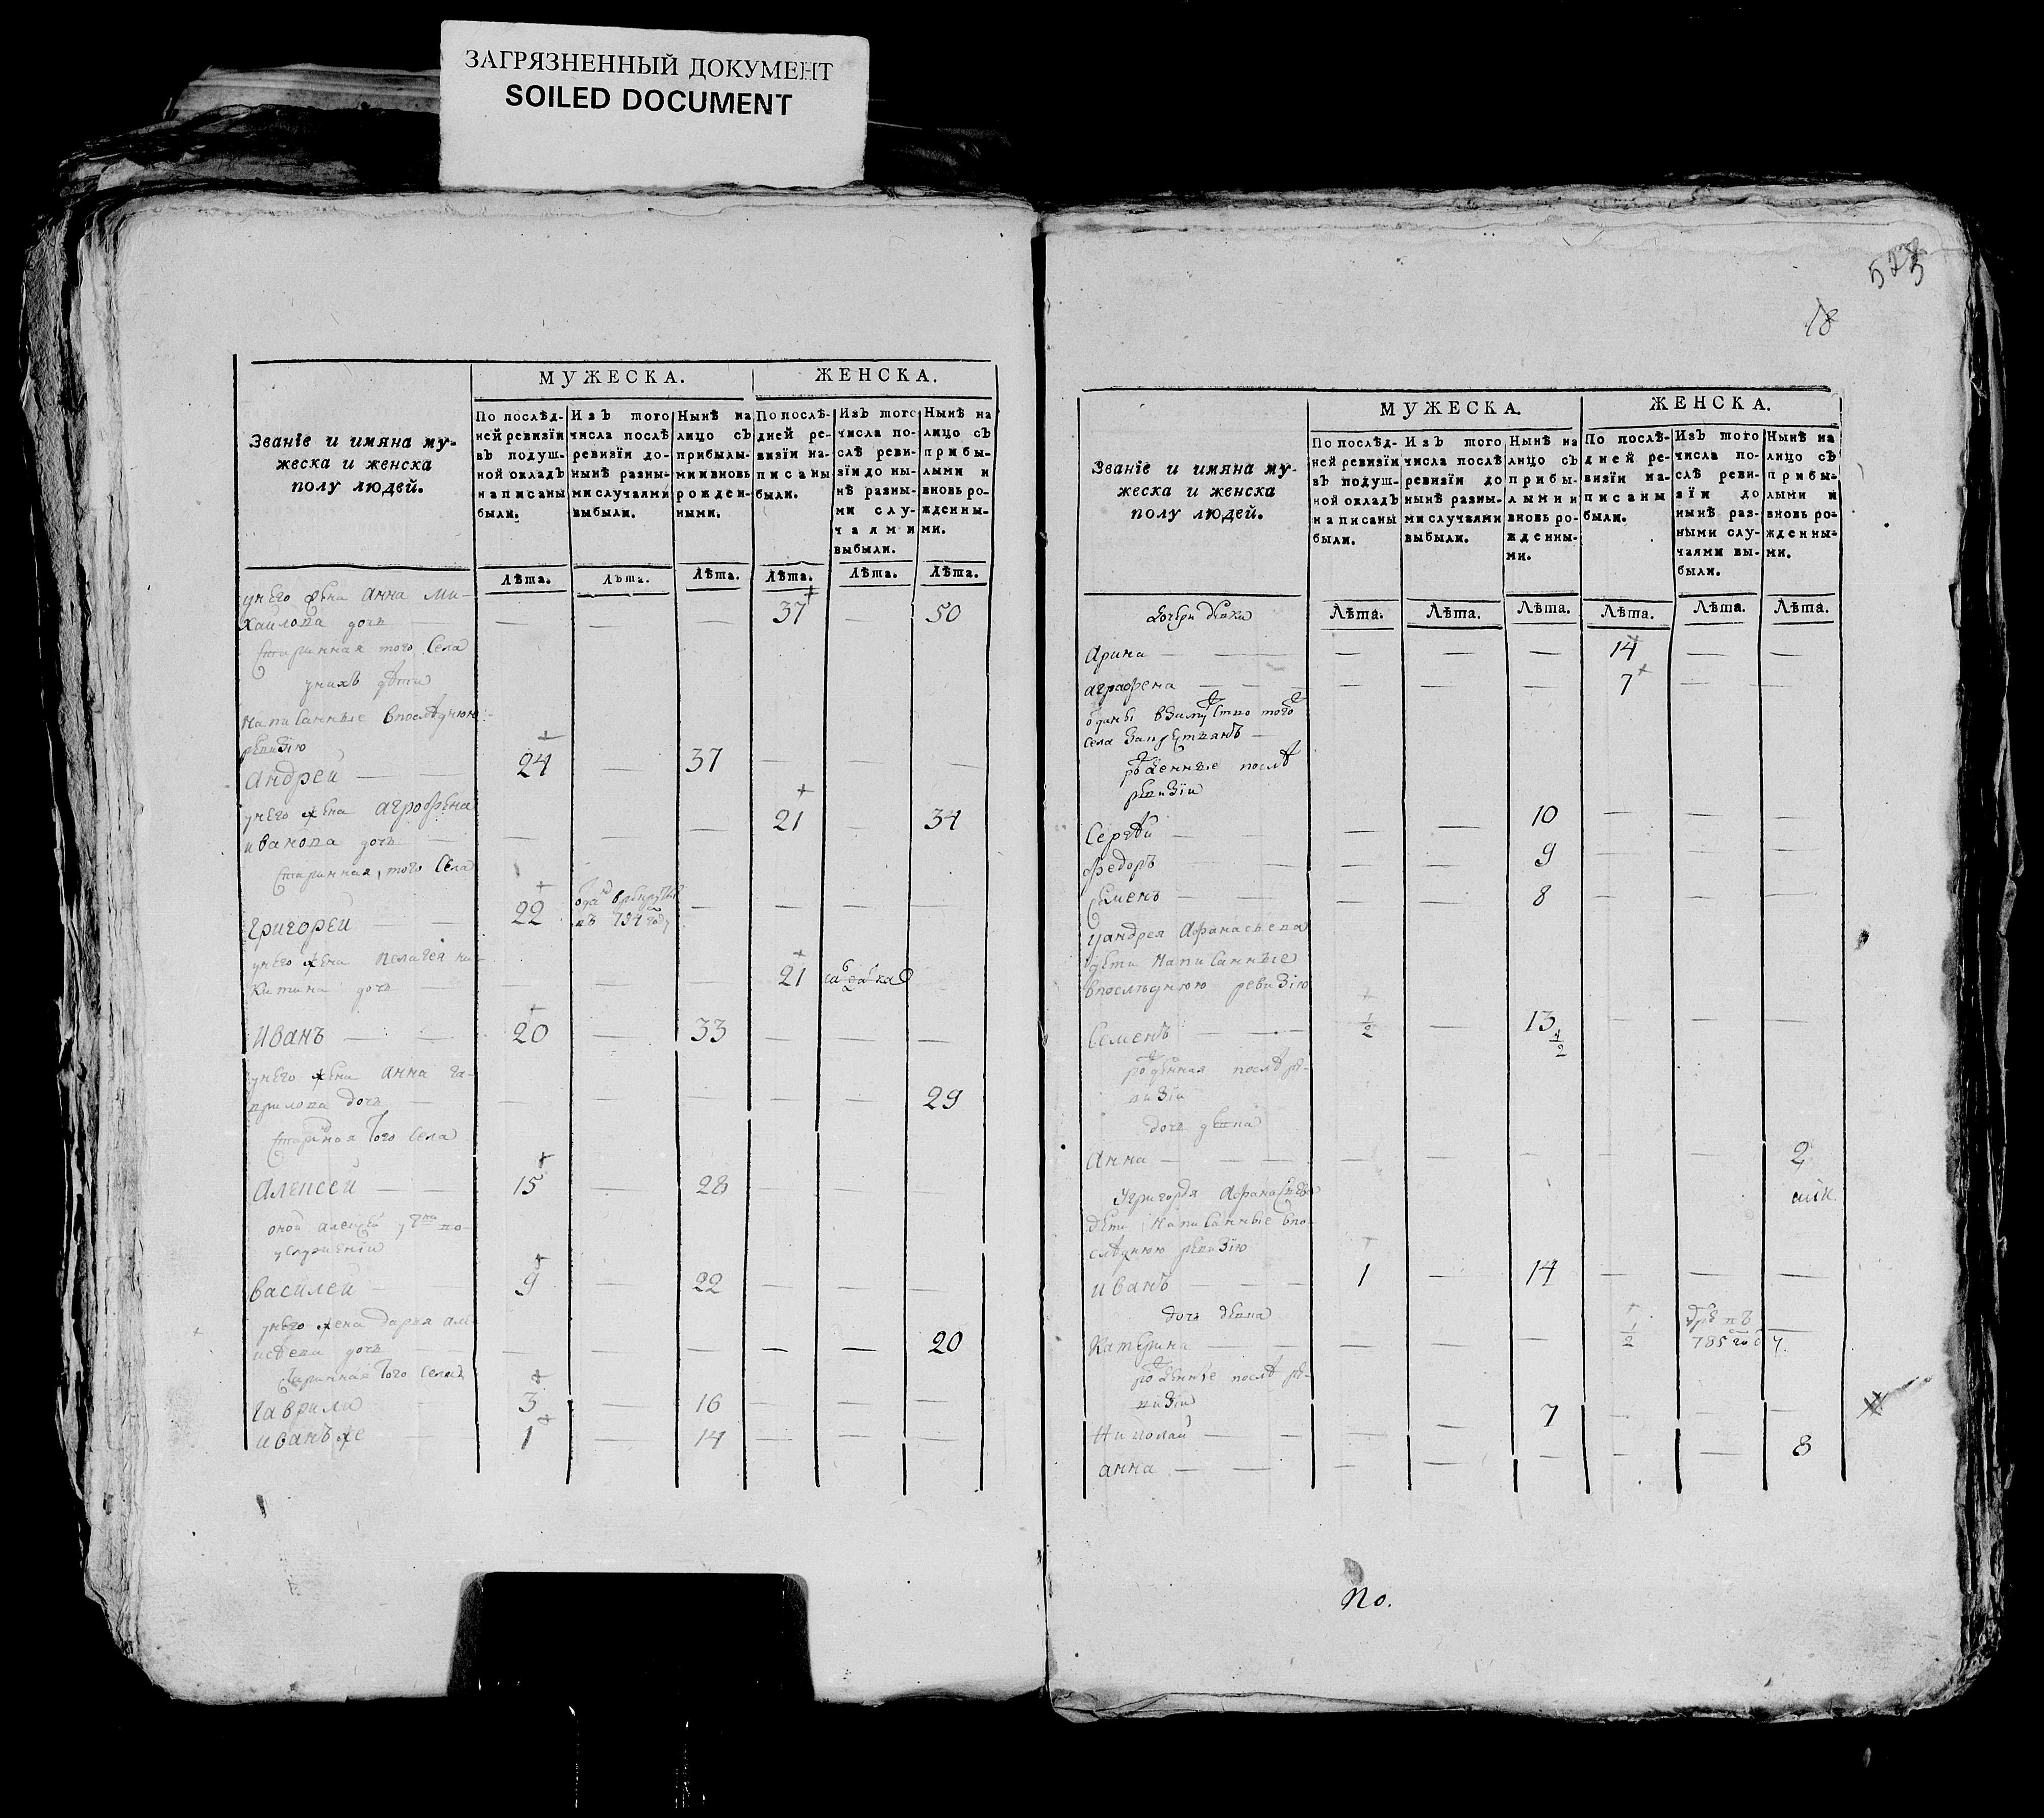 ЗАГРЯЗНЕННЫЙ ДОКУМЕНТ
SOILED DOCUMENT
МУЖЕСКА.
ЖЕНСКА.
Званіе и имяна му-
жеска и женска
полу людей.
По послѣд-
ней ревизіи
въ подуш-
ной окладъ
написаны
были.
Изъ того
числа послѣ
ревизіи до-
нынѣ разны-
ми случаями
выбыли.
Нынѣ на
лицо съ
прибылы-
ми и вновь
рожден-
ными.
По послѣ-
дней ре-
визіи на-
писаны
были.
Изъ того
числа по-
слѣ реви-
зіи до ны-
нѣ разны-
ми слу-
чаями
выбыли.
Нынѣ на
лицо съ
прибы-
лыми и
вновь ро-
жденны-
ми.
Лѣта. Лѣта. Лѣта. Лѣта. Лѣта. Лѣта.
у него жена Анна Ми-
хайлова дочь — — — 37 — 50
старинная того села
у нихъ дѣти
написанные в последнюю
ревизію
Андрей — 24 — 37 — — —
у него жена агрофена
иванова дочь — — — 21 — 34
старинная того села
Григорей — 22 в рекруты — — — —
въ 794 году
у него жена пелагея ни-
китина дочь — — — 21
Иванъ — 20 — 33 — — —
у него жена анна га-
врилова дочь — — — — — 29
старинная того села
Алексей — 15 — 28 — — —
оной алексей
услужении
василей — 9 — 22 — — —
у него жена дарья але-
исѣева дочь — — — — — 20
старинная того села
гаврила 3 — 16 — — —
иванъ же 1 — 14 — — —
523
18
МУЖЕСКА.
ЖЕНСКА.
Званіе и имяна му-
жеска и женска
полу людей.
По послѣд-
ней ревизіи
въ подуш-
ной окладъ
написаны
были.
Изъ того
числа послѣ
ревизіи до
нынѣ разны-
ми случаями
выбыли.
Нынѣ на
лицо съ
прибы-
лыми и
вновь ро-
жденны-
ми.
По послѣ-
дней ре-
визіи на-
писаны
были.
Изъ того
числа по-
слѣ реви-
зіи до
нынѣ раз-
ными слу-
чаями вы-
были.
Нынѣ на
лицо съ
прибы-
лыми и
вновь ро-
жденны-
ми.
Лѣта. Лѣта. Лѣта. Лѣта. Лѣта. Лѣта.
дочери девки
Арина — — — 14 — —
аграфена — — — 7 — —
отданы в замужство того
села за крестьянъ
рожденные послѣ
ревизіи
Сергѣй — — 10 — — —
федоръ — — 9 — — —
семенъ — — 8 — — —
у андрея Афанасьева
дети написанные
в последнюю ревизію
Семенъ 1/2 — 13 1/2 — — —
рожденная послѣ ре-
визіи
дочь девка
Анна — — — — — 2
у григорья Афанасьева
дети написанные в по-
слѣднюю ревизію
иванъ 1 — 14 — — —
дочь девка
Катерина — — — 1/2 въ —
785 году
рожденные послѣ ре-
визіи
Николай — — 7 — — —
анна — — — — — 8
No.